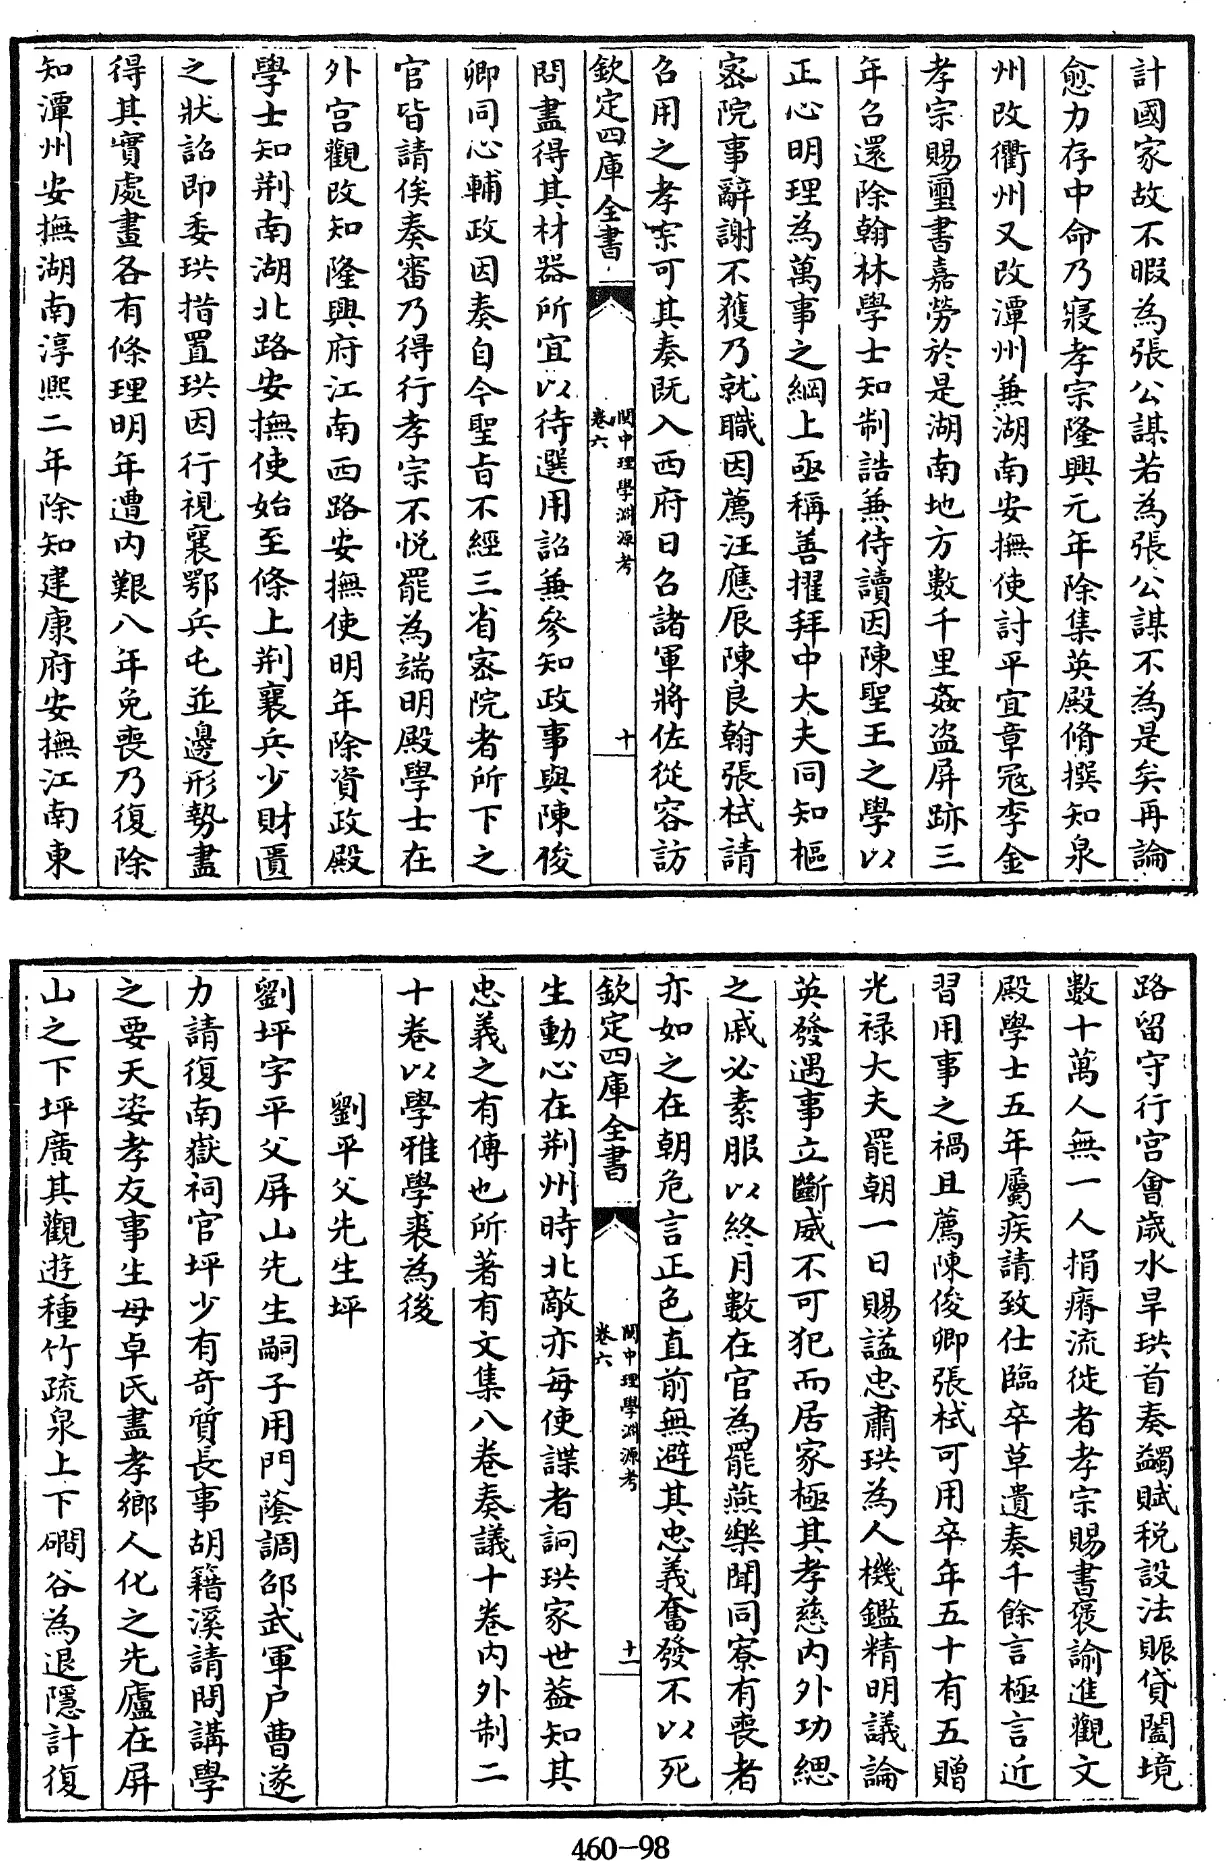 計國家故不暇為張公謀若為張公謀不為是矣再論
愈力存中命乃寢孝宗隆興元年除集英殿脩撰知泉
州改衢州又改潭州兼湖南安撫使討平宜章寇李金
孝宗賜璽書嘉勞於是湖南地方數千里姦盗屏跡三
年召還除翰林學士知制誥兼侍讀因陳聖王之學以
正心明理為萬事之綱上亟稱善擢拜中大夫同知樞
宻院事辭謝不獲乃就職因薦汪應辰陳良翰張栻請
召用之孝宗可其奏既入西府日召諸軍將佐從容訪
欽定四庫全書
閩中理學淵源考
卷六
十
問盡得其材器所宜以待選用詔兼參知政事與陳俊
卿同心輔政因奏自今聖旨不經三省宻院者所下之
官皆請俟奏審乃得行孝宗不悦罷為端明殿學士在
外宫觀改知隆興府江南西路安撫使明年除資政殿
學士知荆南湖北路安撫使始至條上荆襄兵少財匱
之狀詔即委珙措置珙因行視襄鄂兵屯並邊形勢盡
得其實處畫各有條理明年遭内艱八年免喪乃復除
知潭州安撫湖南淳熙二年除知建康府安撫江南東
路留守行宫會歲水旱珙首奏蠲賦税設法賑貸闔境
數十萬人無一人捐瘠流徙者孝宗賜書褒諭進觀文
殿學士五年屬疾請致仕臨卒草遺奏千餘言極言近
習用事之禍且薦陳俊卿張栻可用卒年五十有五贈
光禄大夫罷朝一日賜諡忠肅珙為人機鑑精明議論
英發遇事立斷威不可犯而居家極其孝慈内外功緦
之戚必素服以終月數在官為罷燕樂聞同寮有喪者
亦如之在朝危言正色直前無避其忠義奮發不以死
欽定四庫全書
閩中理學淵源考
卷六
十一
生動心在荆州時北敵亦每使諜者詗珙家世益知其
忠義之有傳也所著有文集八卷奏議十卷内外制二
十卷以學雅學裘為後
劉平父先生坪
劉坪字平父屏山先生嗣子用門蔭調邵武軍户曹遂
力請復南嶽祠官坪少有竒質長事胡籍溪請問講學
之要天姿孝友事生母卓氏盡孝鄉人化之先廬在屏
山之下坪廣其觀遊種竹疏泉上下磵谷為退隱計復
460-98